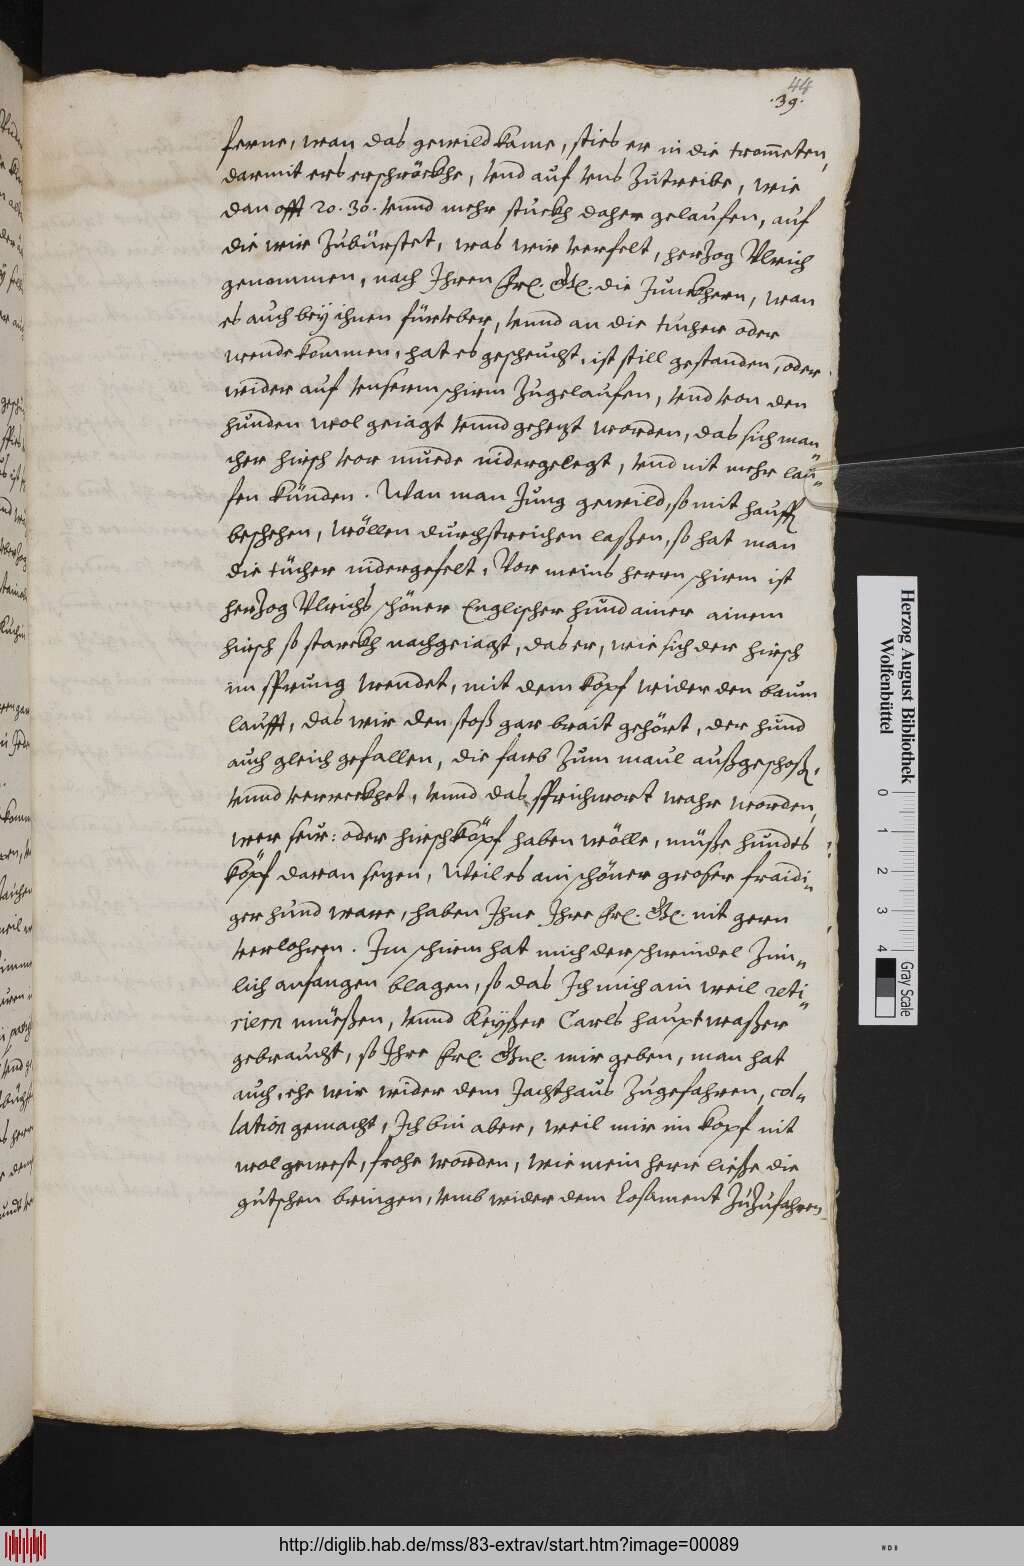 44
.39.
ferne, wan das gewild kame, sties er in die trommeten,
darmit ers erschröckhe, vnd auf vns zutreibe, wie
dan offt 20. 30. vnnd mehr stuckh daher gelaufen, auf
die wir zubürstet, was wir verfelt, herzog Vlrich
genommen, nach Ihren Frl. Gl: die Junckhern, wan
es auch bey ihnen fürvber, vnnd an die tücher oder
wende kommen, hat es gescheucht, ist still gestanden, oder
wider auf vnserm schirm zugelaufen, vnd von den
hunden wol geiagt vnnd gehezt worden, das sich man
cher hirsch vor muede nidergelegt, vnd nit mehr lau¬
fen künden. Wan man Jung gewild, so mit hauffen
beschehen, wöllen durchstreichen laßen, so hat man
die tücher nidergefelt. Vor meins herrn schirm ist
herzog Vlrichs schöner Englischer hund ainer ainem
hirsch so starckh nachgeiagt, das er, wie sich der hirsch
im sprung wendet, mit dem kopf wider den baum
laufft, das wir den stoß gar brait gehört, der hund
auch gleich gefallen, die farb zum maul außgeschoßen,
vnnd verreckhet, vnnd das sprichwort wahr worden,
wer seü: oder hirschköpf haben wölle, müße hunds
köpf daran sezen, Weil es ain schöner groser fraidi¬
ger hund ware, haben Ihne Ihre Frl. Gl. nit gern
verlohren. Im schirm hat mich der schwindel zim¬
lich anfangen blagen, so das Ich mich ain weil reti¬
riern müeßen, vnnd Keyßer Carls hauptwaßer
gebraucht, so Ihre Frl. Gnl. mir geben, man hat
auch, ehe wir wider dem Jachthaus zugefahren, col¬
lation gemacht, Ich bin aber, weil mir im kopf nit
wol gewest, frohe worden, wie mein herr ließe die
gutschen bringen, vmb wider dem Losament zuzufahren
Herzog August Bibliothek
Wolfenbüttel
0 1 2 3 4
Gray Scale
http://diglib.hab.de/mss/83-extrav/start.htm?image=00089